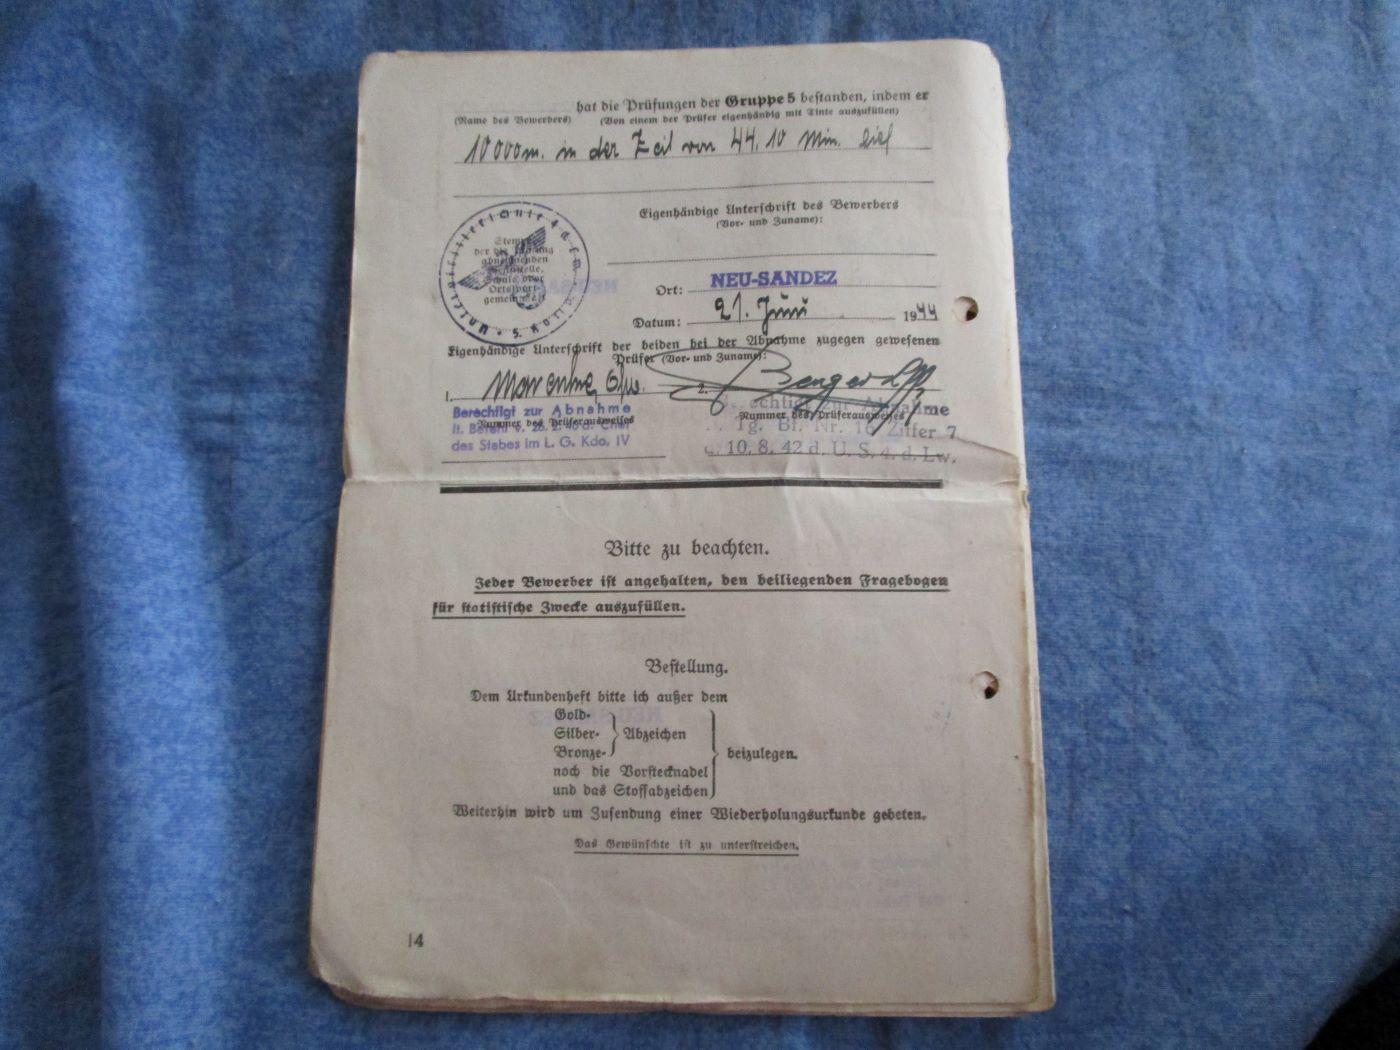 hat die Prüfungen der Gruppe 5 bestanden, indem er
(Name des Bewerbers) (Von einem der Prüfer eigenhändig mit Tinte auszufüllen)
10000m. in der Zeit von 44.10 Min. lief
Eigenhändige Unterschrift des Bewerbers
(Vor- und Zuname):
Stempel
der die Prüfung
abnehmenden
Ortssport-
gemeinschaft
Ort: NEU-SANDEZ
Datum: 21. Juni 1944
Eigenhändige Unterschrift der beiden bei der Abnahme zugegen gewesenen
Prüfer (Vor- und Zuname):
1. 2.
Berechtigt zur Abnahme
Nummer des Prüferausweises
lt. Befehl v. Chef
des Stabes im L. G. Kdo. IV
echtigt zur Abnahme
Nummer des Prüferausweises
Tg. Bf. Nr. 16 Ziffer 7
10. 8. 42 d. U. S. 4. d. Lw.
Bitte zu beachten.
Jeder Bewerber ist angehalten, den beiliegenden Fragebogen
für statistische Zwecke auszufüllen.
Bestellung.
Dem Urkundenheft bitte ich außer dem
Gold-
Silber- Abzeichen
Bronze- beizulegen.
noch die Vorstecknadel
und das Stoffabzeichen
Weiterhin wird um Zusendung einer Wiederholungsurkunde gebeten.
Das Gewünschte ist zu unterstreichen.
14